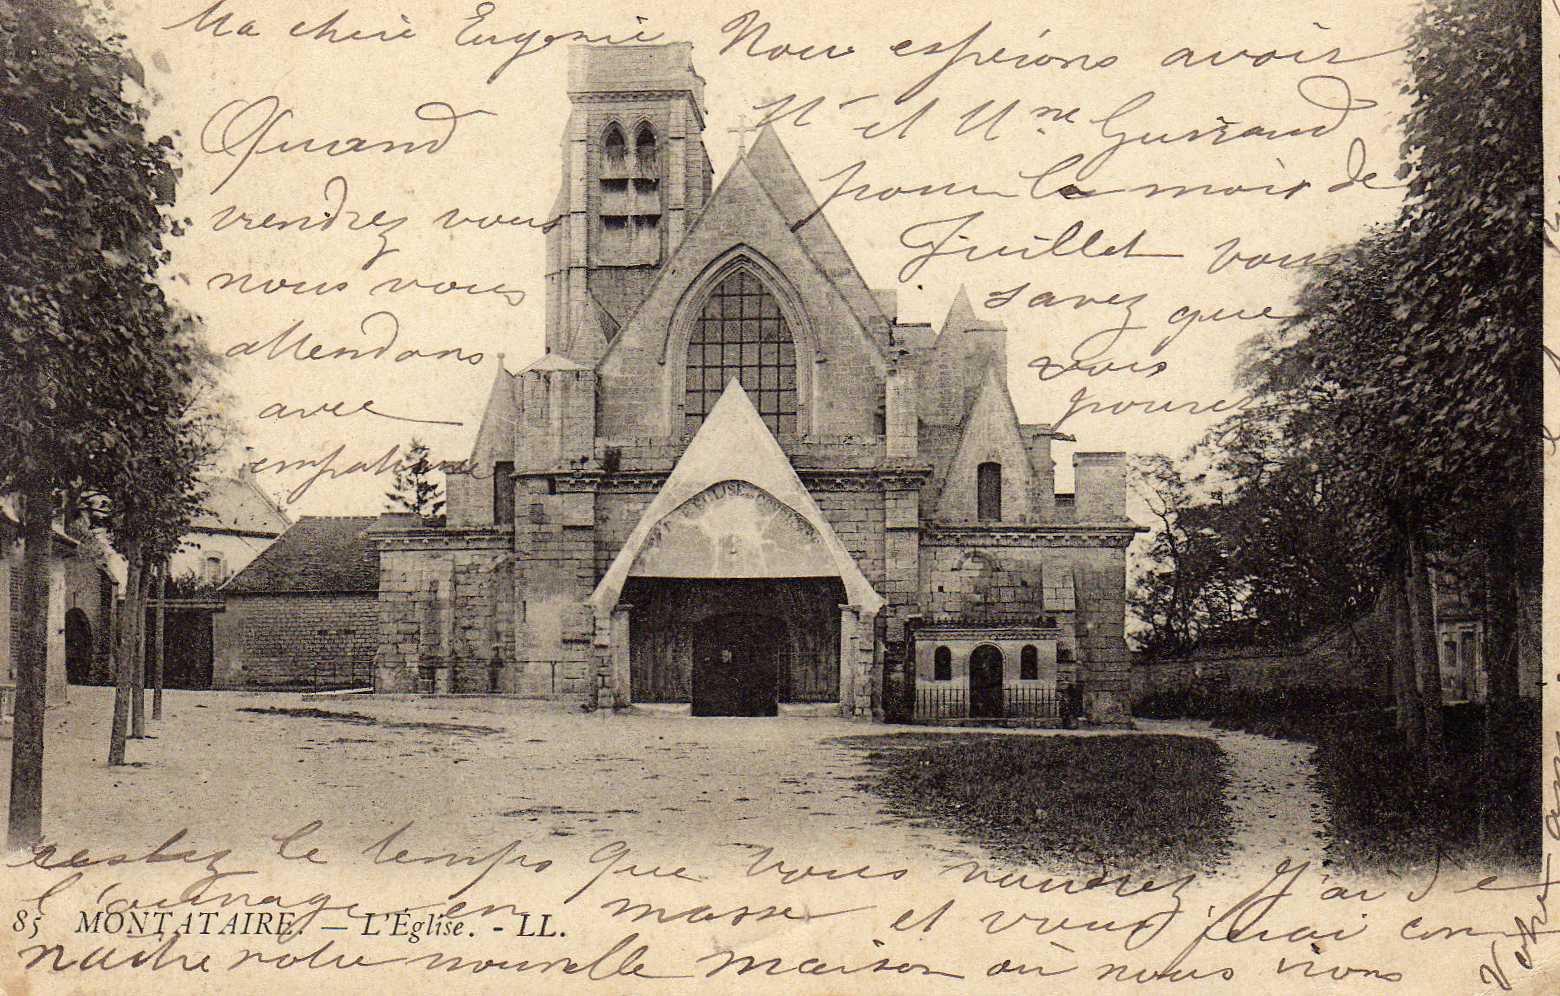 Ma chère Eugenie
Quand
viendrez vous
nous vous
attendons
avec
impatience
Nous espérions avoir
Mr et Mme
pour le mois de
Juillet vous
savez que
vous
pouvez
restez le temps que vous voudrez J'ai de
l'ouvrage en masse et vous ferai con
naitre notre nouvelle maison où nous irons
Votre
85 MONTATAIRE. — L'Église. - LL.